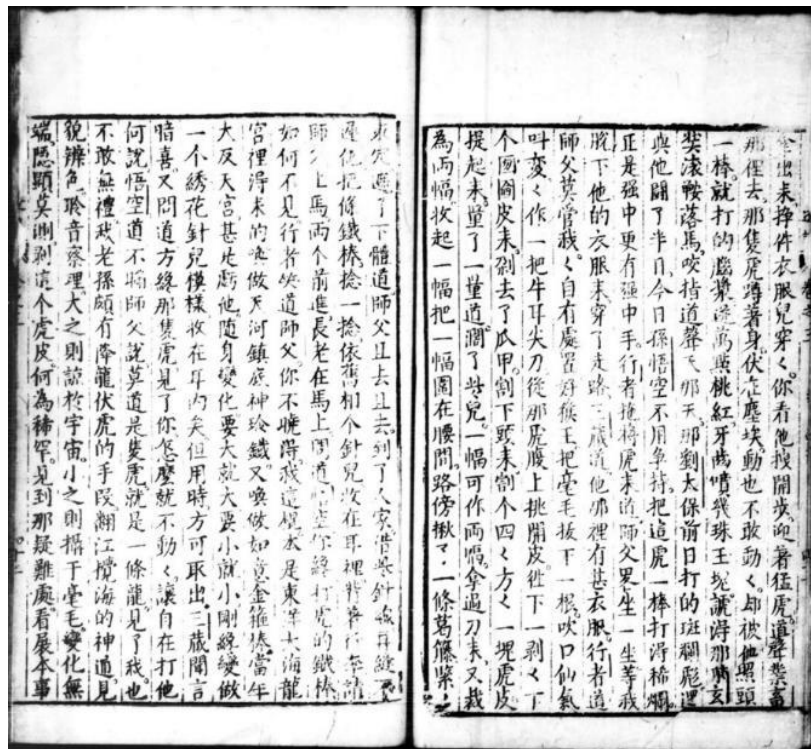 出来掙件衣服兒穿〱。你看他拽開步迎著猛虎。道聲業畜
那裡去。那隻虎蹲著身。伏在塵埃。動也不敢動〱。却被他照頭
一棒。就打的腦漿迸萬點桃紅。牙齒噴幾珠玉塊。諕得那陳玄
奘滾鞍落馬。咬指道聲天那天。那劉太保前日打的斑斕彪還
與他鬪了半日。今日孫悟空不用争持。把這虎一棒打得稀爛。
正是强中更有强中手。行者拖將虎来道師父畧坐一坐等我
脫下他的衣服来穿了走路。三藏道。他那裡有甚衣服。行者道
師父莫管我〱自有處置好猴王把毫毛拔下一根。吹口仙氣
叫変〱作一把牛耳尖刀從那虎腹上挑開皮徃下一剥〱下
个囫圇皮来。剁去了爪甲。割下頭来割个四〱方〱一塊虎皮
提起来。量了一量道。濶了些兒。一幅可作両幅。拿過刀来。又裁
為両幅。收起一幅把一幅圍在腰間。路傍揪了一條葛籐。緊
定。遮了下體道。師父且去且去。到了人家。借些針線再縫
他把條鐵棒捻一捻依舊相个針兒收在耳裡背着行李請
師父上馬。両个前進。長老在馬上問道悟空你纔打虎的鐵棒
如何不見。行者笑道師父。你不曉得我這棍。本是東洋大海龍
宮裡得来的喚做天河鎮底神珍鐵又喚做如意金箍棒。當年
大反天宮甚是虧他。隨身變化要大就大要小就小剛纔變做
一个綉花針兒模樣收在耳內矣但用時方可取出。三藏聞言
暗喜。又問道方纔那隻虎見了你怎麼就不動〱讓自在打他
何說悟空道不瞞師父說莫道是隻虎就是一條龍見了我。也
不敢無禮我老孫頗有降龍伏虎的手段翻江攪海的神通見
貌辨色。聆音察理大之則諒於宇宙。小之則攝于毫毛。變化無
端隱顯莫測剥這个虎皮。何為稀罕。見到那疑難處看展本事